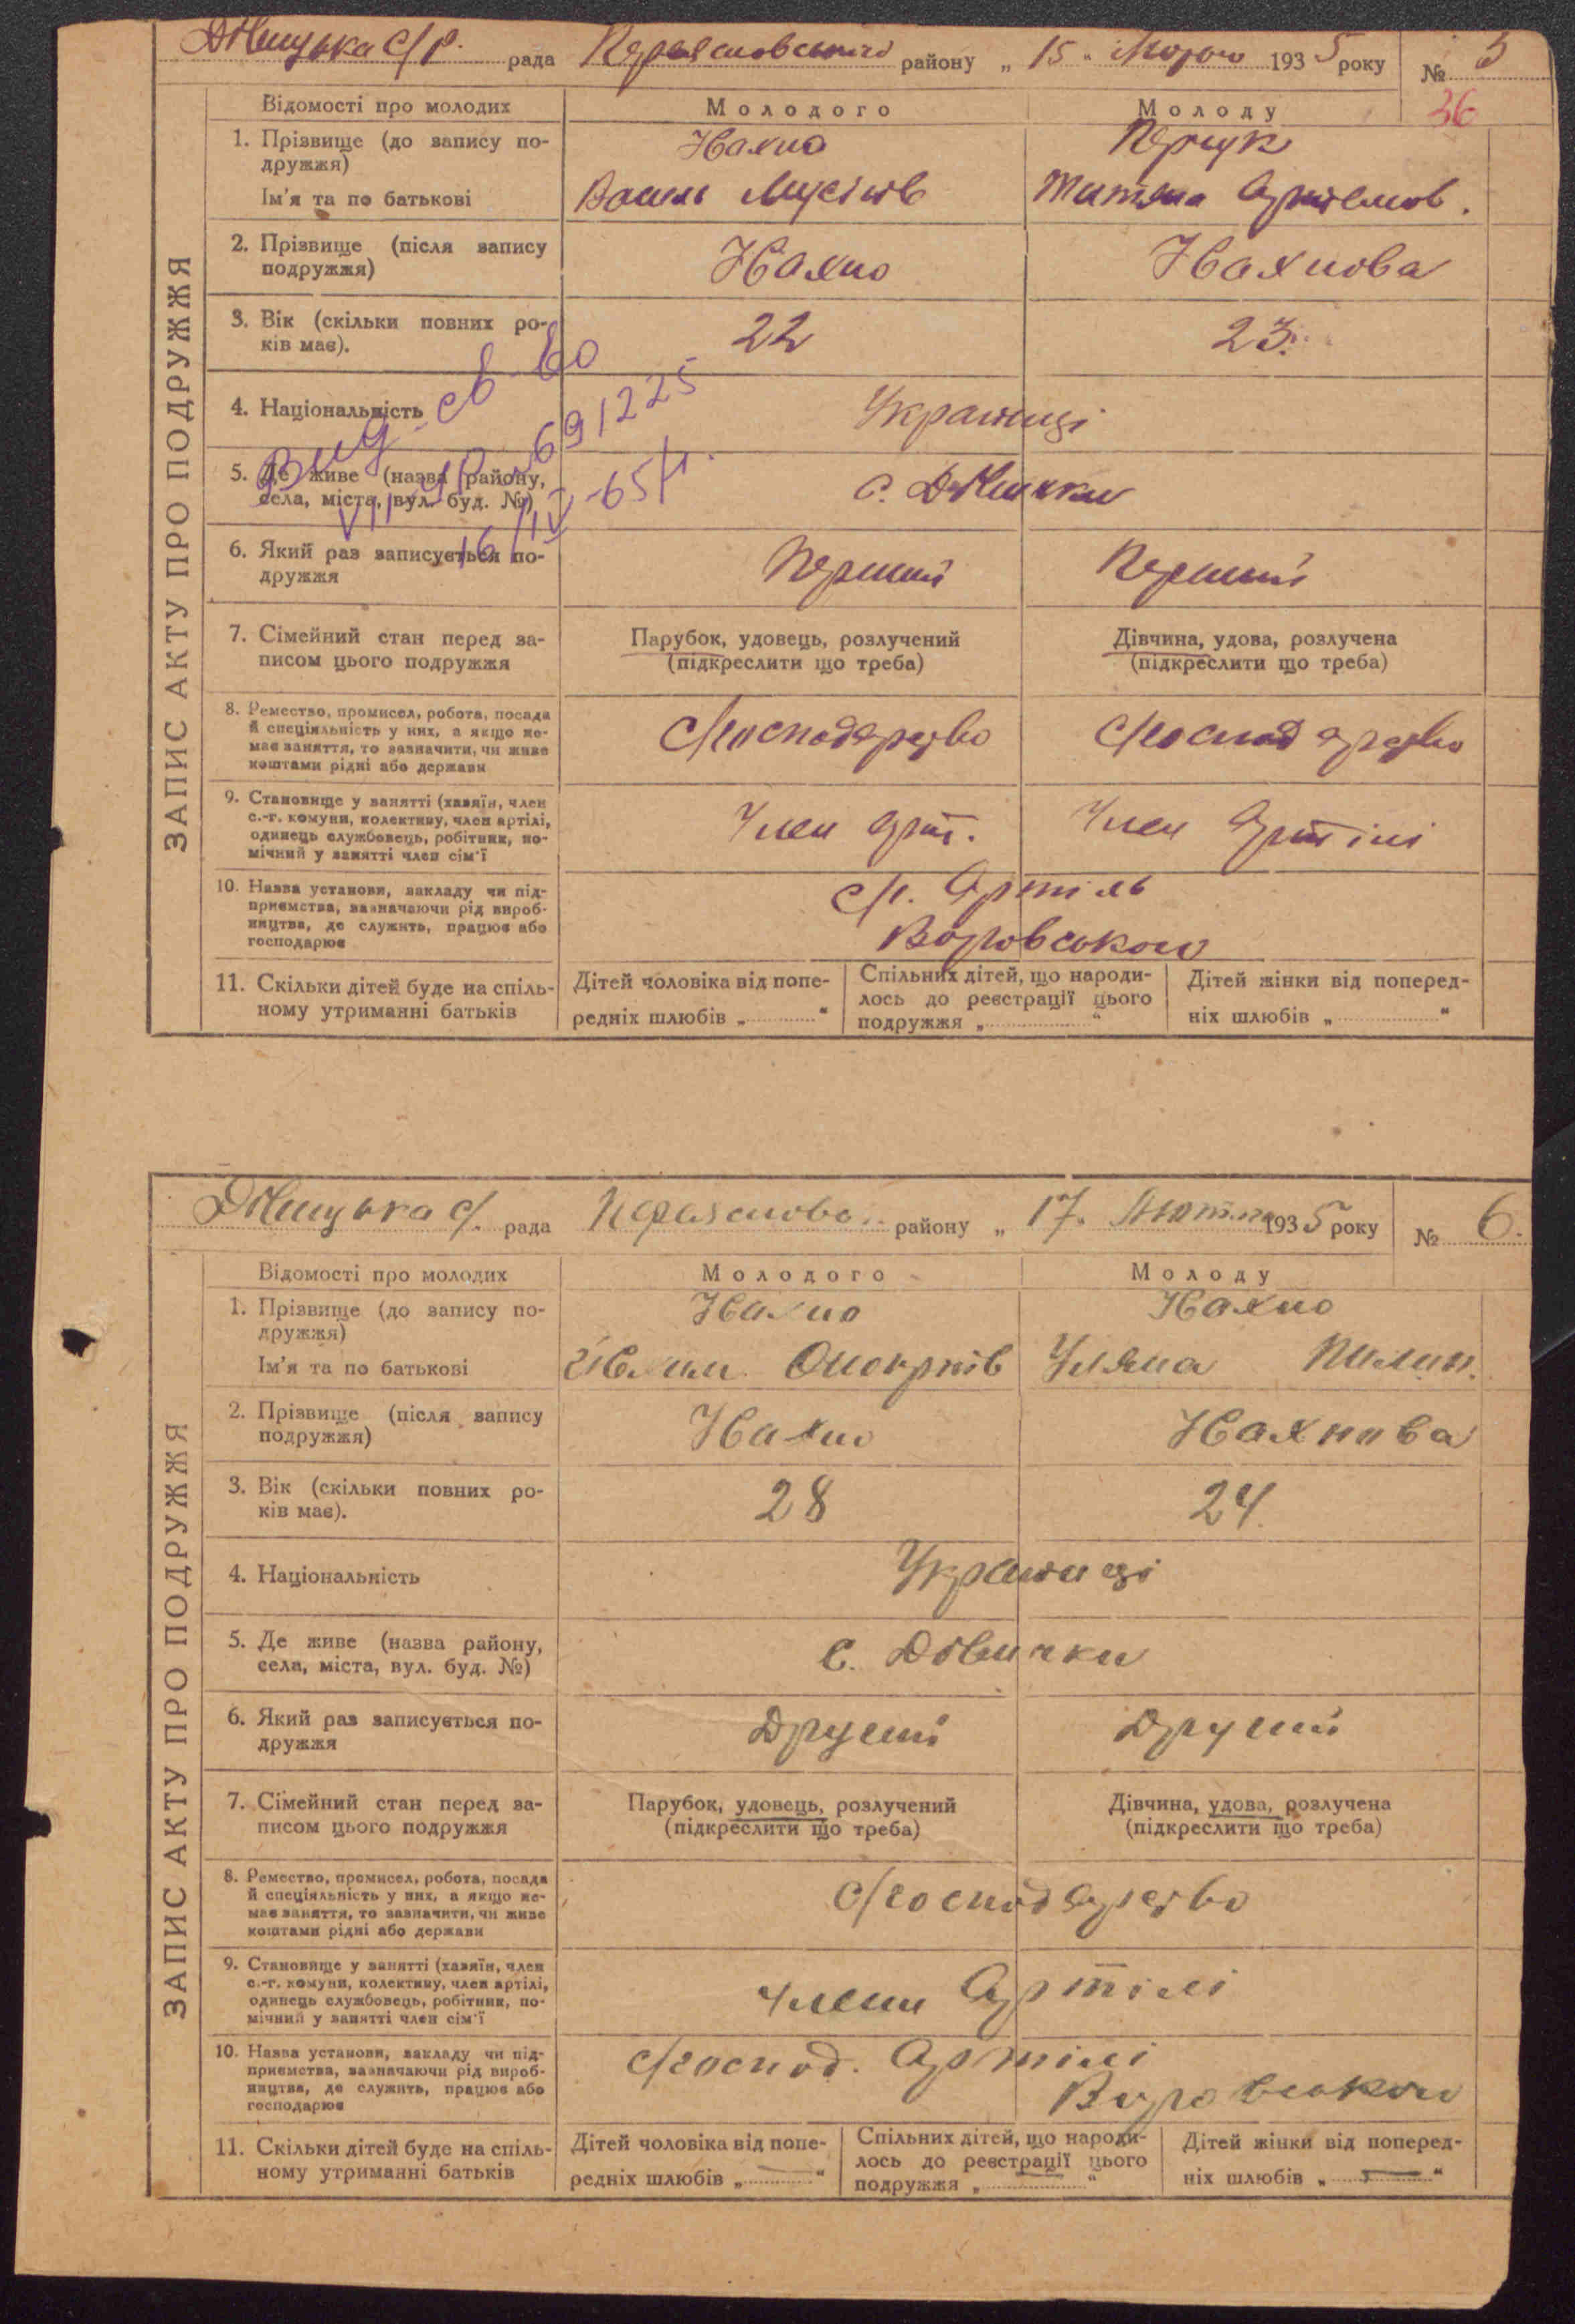 Дівицька с/р. рада Переяславського району „ 15 " Лютого 1935 року № 5
36
ЗАПИС АКТУ ПРО ПОДРУЖЖЯ
Відомості про молодих Молодого Молоду
1. Прізвище (до запису по-
дружжя)
Нахно
Ім'я та по батькові
Василь Мусіїв
2. Прізвище (після запису
подружжя)
Нахно Нахнова
3. Вік (скільки повних ро-
ків має).
22 23.
4. Національність
Українці
Вид. св-во
691225
5. Де живе (назва району,
села, міста, вул. буд. №)
с. Дівички
16/IV-65 р.
6. Який раз записується по-
дружжя
Перший Перший
7. Сімейний стан перед за-
писом цього подружжя
Парубок, удовець, розлучений
(підкреслити що треба)
Дівчина, удова, розлучена
(підкреслити що треба)
8. Ремество, промисел, робота, посада
й спеціяльність у них, а якщо не-
має заняття, то зазначити, чи живе
коштами рідні або держави
с/господарство с/господарство
9. Становище у занятті (хазяїн, член
с.-г. комуни, колективу, член артілі,
одинець службовець, робітник, по-
мічний у занятті член сім'ї
Член арт. Член Артілі
10. Назва установи, закладу чи під-
приємства, зазначаючи рід вироб-
ництва, де служить, працює або
господарює
с/г. Артіль
Воровського
11. Скільки дітей буде на спіль-
ному утриманні батьків
Дітей чоловіка від попе-
редніх шлюбів „ "
Спільних дітей, що народи-
лось до реєстрації цього
подружжя „ "
Дітей жінки від поперед-
ніх шлюбів „ "
Дівицька с/. рада Переяславо.. району „ 17. Лютого 1935 року № 6.
ЗАПИС АКТУ ПРО ПОДРУЖЖЯ
Відомості про молодих Молодого Молоду
1. Прізвище (до запису по-
дружжя)
Нахно Нахно
Ім'я та по батькові
Уляна Пилип.
2. Прізвище (після запису
подружжя)
Нахно Нахнова
3. Вік (скільки повних ро-
ків має).
28 24.
4. Національність
Українці
5. Де живе (назва району,
села, міста, вул. буд. №)
с. Дівички
6. Який раз записується по-
дружжя
Другий Другий
7. Сімейний стан перед за-
писом цього подружжя
Парубок, удовець, розлучений
(підкреслити що треба)
Дівчина, удова, розлучена
(підкреслити що треба)
8. Ремество, промисел, робота, посада
й спеціяльність у них, а якщо не-
має заняття, то зазначити, чи живе
коштами рідні або держави
с/господарство
9. Становище у занятті (хазяїн, член
с.-г. комуни, колективу, член артілі,
одинець службовець, робітник, по-
мічний у занятті член сім'ї
члени Артілі
10. Назва установи, закладу чи під-
приємства, зазначаючи рід вироб-
ництва, де служить, працює або
господарює
с/господ. Артілі
Воровського
11. Скільки дітей буде на спіль-
ному утриманні батьків
Дітей чоловіка від попе-
редніх шлюбів „ — "
Спільних дітей, що народи-
лось до реєстрації цього
подружжя „ — "
Дітей жінки від поперед-
ніх шлюбів „ — "